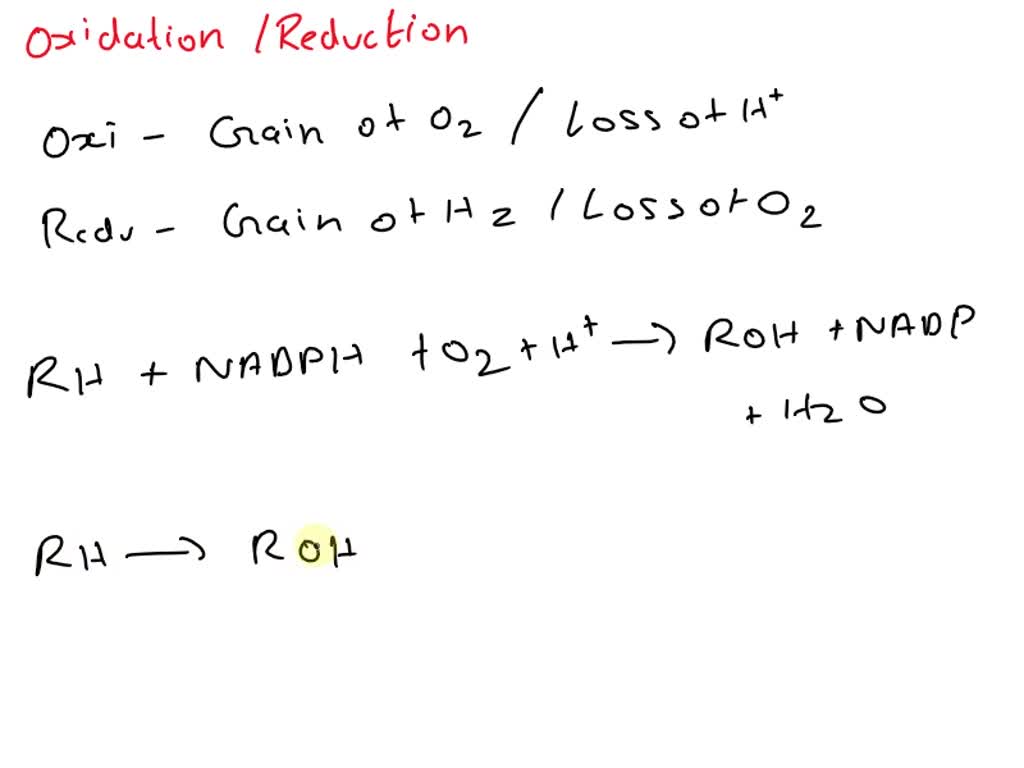 Oxidation / Reduction
Oxi - Gain of O2 / Loss of H+
Redu - Gain of H2 / Loss of O2
RH + NADPH + O2 + H+ → ROH + NADP
+ H2O
RH → ROH